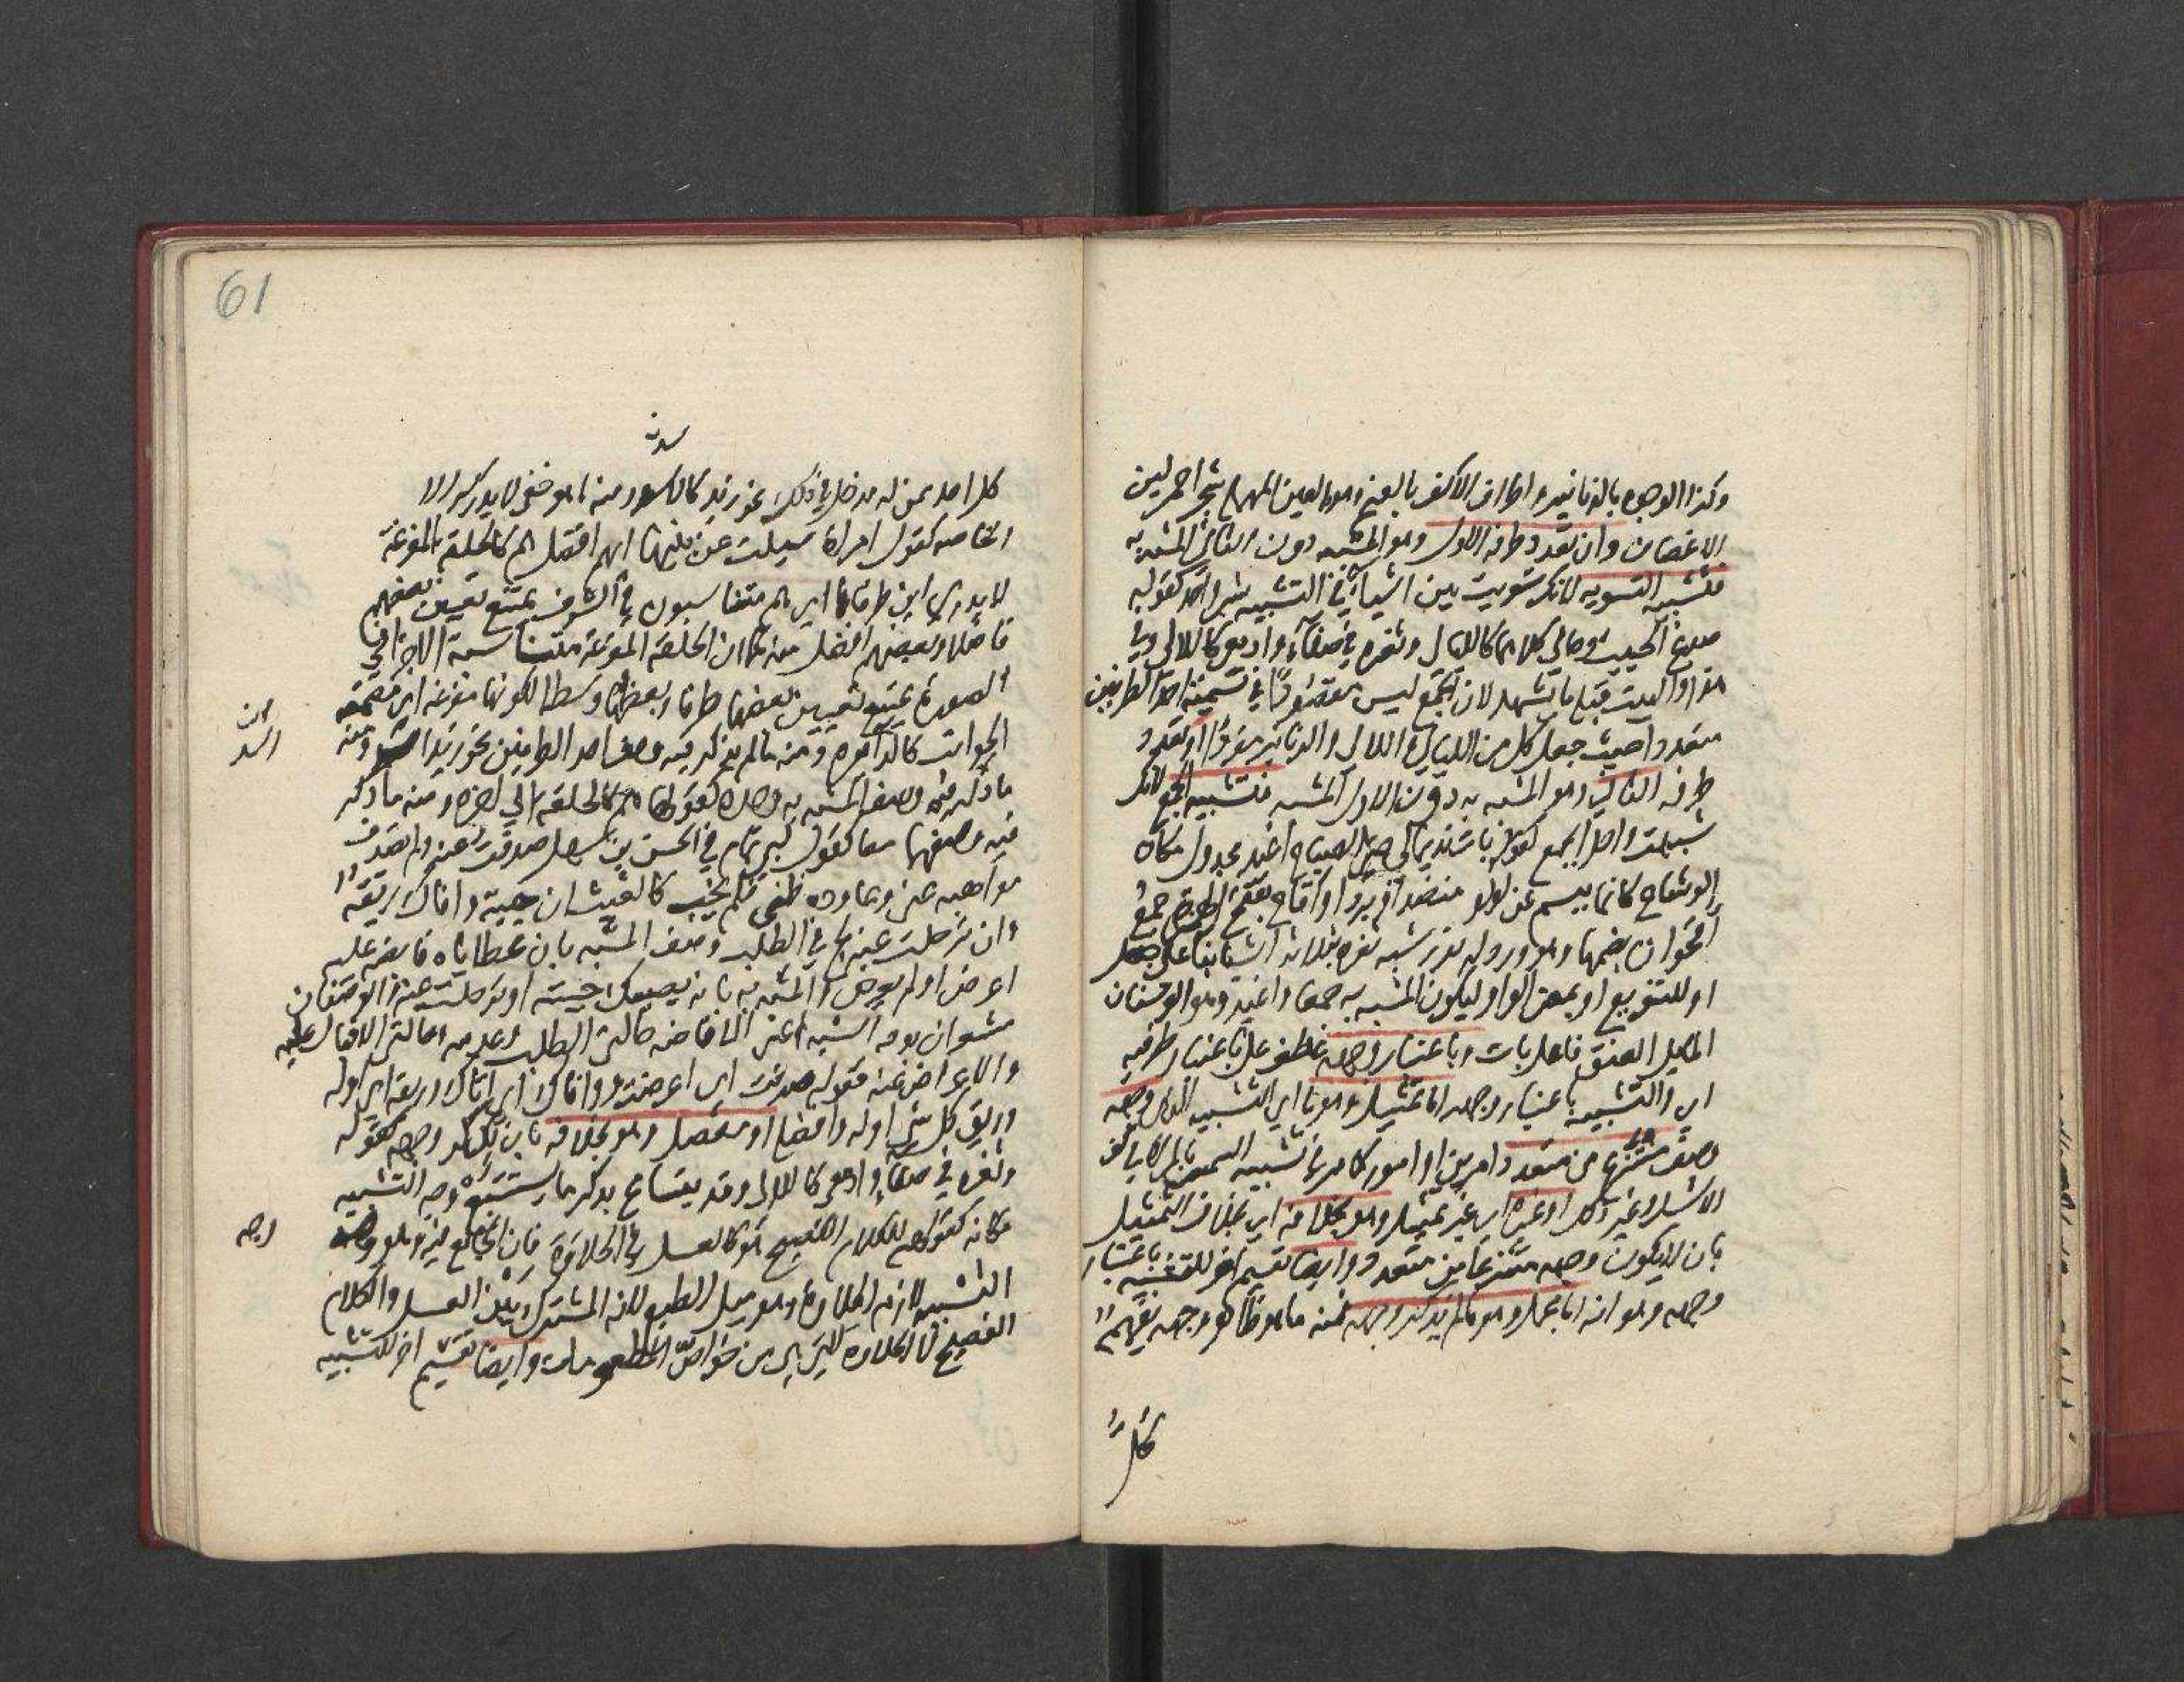 وكذا الوجوه بالدنانير واطراف الاكف بالعنم وهو بالعين المهملة شجر احمر لين
الاغصان وان تعدد طرفه الاول وهو المشبه دون الثاني المشبه به
فتشبيه التسوية لانك سويت بين اشياء في التشبيه بشي واحد كقوله
صدغ الحبيب وحالي كلاهما كالليالي وثغره في صفاء وادمعي كاللالي
هذا والبيت قبله ما يشهد لان الجمع ليس مقصودا في تسمية احد الطرفين
متعددا حيث جعل كل من الليالي واللالي والدنانير مفردا او تعدد
طرفه الثاني وهو المشبه به دون الاول المشبه فتشبيه الجمع لانك
شبهت واحدا بجمع كقوله بات نديما لي حتى الصباح اغيد مجدول مكان
الوشاح كانما يبسم عن لؤلؤ منضد او برد او اقاح بفتح الهمزة جمع
اقحوان بضمها وهو ورد له نور شبه ثغره بثلاثة اشياء
او للتنويع او بمعنى الواو ليكون المشبه به جمعا واغيد وهو الوسنان
المايل العنق فاعل بات وباعتبار وجهه عطف على باعتبار طرفيه
اي والتشبيه باعتبار وجهه اما تمثيل وهو ما اي التشبيه الذي وجهه
وصف منتزع من متعدد امرين او امور كما مر في تشبيه الشمس بالمراة في كف
الاشل وغير ذلك او غيره اي غير تمثيل وهو بخلافه اي بخلاف التمثيل
بان لا يكون وجهه منتزعا من متعدد وايضا تقسيم اخر للتشبيه باعتبار
وجهه وهو انه اما مجمل وهو ما لم يذكر وجهه فمنه ما هو ظاهر وجهه يفهمه
كل
61
كل احد ممن له مدخل في ذلك نحو زيد كالاسد ومنه ما هو خفي لا يدركه الا
الخاصة كقول امراة سيلت عن بنيها ايهم افضل هم كالحلقة المفرغة
لا يدري اين طرفاها اي هم متناسبون في الشرف يمتنع تعيين بعضهم
فاضلا وبعضهم افضل منه كما ان الحلقة المفرغة متناسبة الاجزا في
الصورة يمتنع تعيين بعضها طرفا وبعضها وسطا لكونها مفرغة اي مصمتة
الجوانب كالدائرة ومنه ما لم يذكر فيه وصف احد الطرفين نحو زيد اسد ومنه
ما ذكر فيه وصف المشبه به وحده كقولها هم كالحلقة الى اخره ومنه ما ذكر
فيه وصفهما معا كقول ابي تمام في الحسن بن سهل صدفت عنه ولم تصدف
مواهبه عني وعاوده ظني فلم يخب كالغيث ان جيته وافاك ريقه
وان ترحلت عنه لج في الطلب وصف المشبه بان عطاياه فايضة عليه
اعرض او لم يعرض والمشبه به بانه يصيبك جيته او ترحلت عنه والوصفان
مشعران بوجه الشبه اعني الافاضة حالتي الطلب وعدمه وحالتي الاقبال عليه
والاعراض عنه فقوله صدفت اي اعرضت ووافاك اي اتاك وريقه اي اوله
وريق كل شي اوله وافضله او مفصل وهو بخلافه بان ذكر وجهه كقوله
وثغره في صفاء وادمعي كاللالي وقد يتسامح بذكر ما يستتبعه وجه التشبيه
مكانه كقولهم للكلام الفصيح هو كالعسل في الحلاوة فان الجامع فيه وهو وجه
التشبيه لازم الحلاوة وهو ميل الطبع لانه المشترك بين العسل والكلام
الفصيح لا الحلاوة التي هي من خواص المطعومات وايضا تقسيم اخر للتشبيه
وجه